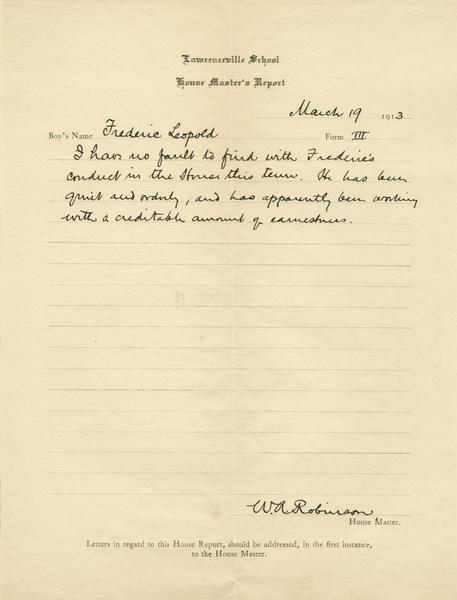 Lawrenceville School
House Master's Report
March 19 1913
Boy's Name Frederic Leopold Form III
I have no fault to find with Frederic's
conduct in the House this term. He has been
quiet and orderly, and has apparently been working
with a creditable amount of earnestness.
W. A. Robinson
House Master.
Letters in regard to this House Report, should be addressed, in the first instance,
to the House Master.